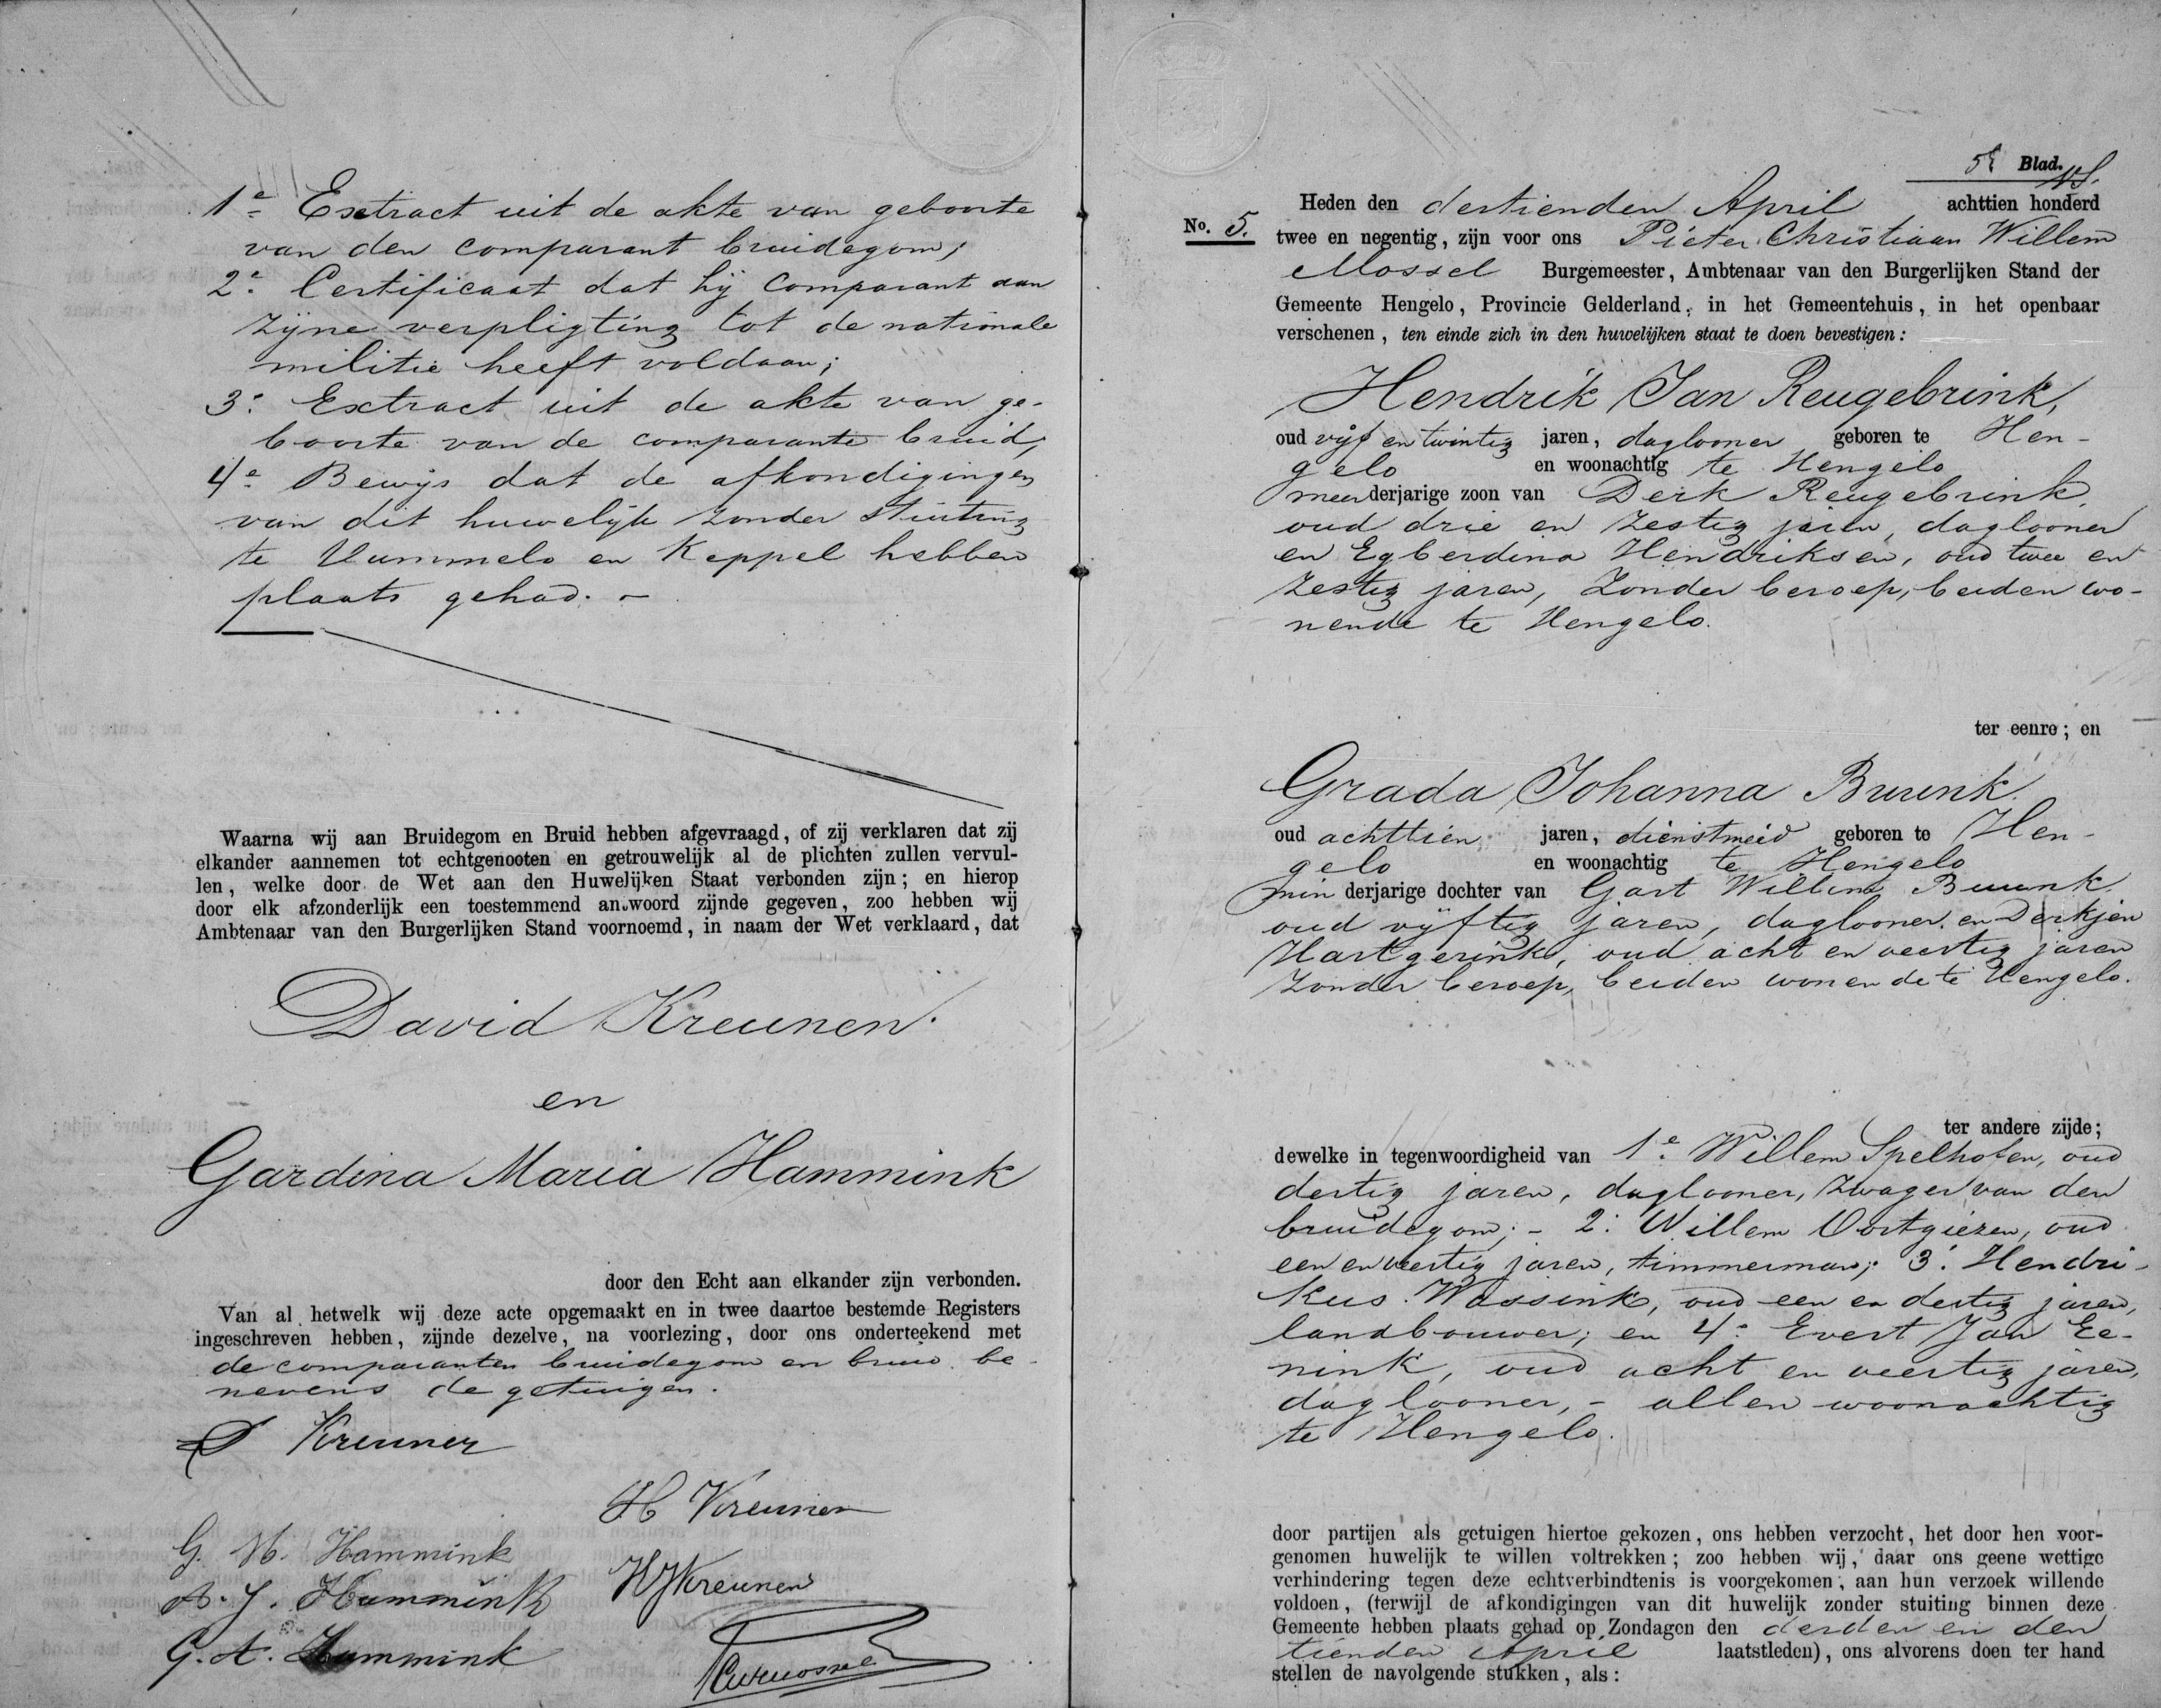 1e Extract uit de akte van geboorte
van den comparant bruidegom;
2e Certificaat dat hij comparant aan
zijne verpligting tot de nationale
militie heeft voldaan;
3e Extract uit de akte van ge-
boorte van de comparante bruid,
4e Bewijs dat de afkondigingen
van dit huwelijk zonder stuiting
te Hummelo en Keppel hebben
plaats gehad. –
Waarna wij aan Bruidegom en Bruid hebben afgevraagd, of zij verklaren dat zij
elkander aannemen tot echtgenooten en getrouwelijk al de plichten zullen vervul-
len, welke door de Wet aan den Huwelijken Staat verbonden zijn; en hierop
door elk afzonderlijk een toestemmend antwoord zijnde gegeven, zoo hebben wij
Ambtenaar van den Burgerlijken Stand voornoemd, in naam der Wet verklaard, dat
David Kreunen.
en
Gardina Maria Hammink
door den Echt aan elkander zijn verbonden.
Van al hetwelk wij deze acte opgemaakt en in twee daartoe bestemde Registers
ingeschreven hebben, zijnde dezelve, na voorlezing, door ons onderteekend met
de comparanten bruidegom en bruid be-
nevens de getuigen.
D Kreunen
H Kreunen
G. M. Hammink
HJKreunen
B. J. Hammink
G. A. Hammink
5e Blad.
Heden den dertienden April achttien honderd
No. 5. twee en negentig, zijn voor ons Pieter Christiaan Willem
Mossel Burgemeester, Ambtenaar van den Burgerlijken Stand der
Gemeente Hengelo, Provincie Gelderland, in het Gemeentehuis, in het openbaar
verschenen, ten einde zich in den huwelijken staat te doen bevestigen:
Hendrik Jan Reugebrink,
oud vijf en twintig jaren, daglooner geboren te Hen-
gelo en woonachtig te Hengelo
meerderjarige zoon van Derk Reugebrink,
oud drie en zestig jaren, daglooner
en Egberdina Hendriksen, oud twee en
zestig jaren, zonder beroep, beiden wo-
nende te Hengelo.
ter eenre; en
Grada Johanna Buunk
oud achttien jaren, dienstmeid geboren te Hen-
gelo en woonachtig te Hengelo
minderjarige dochter van Gart Willem Buunk
oud vijftig jaren, daglooner en Derkjen
Hartgerink, oud acht en veertig jaren
zonder beroep, beiden wonende te Hengelo.
ter andere zijde;
dewelke in tegenwoordigheid van 1e Willem Spelhofen, oud
dertig jaren, daglooner, zwager van den
bruidegom; – 2e Willem Oortgiezen, oud
een en veertig jaren, timmerman; 3e Hendri-
kus Wassink, oud een en dertig jaren,
landbouwer; en 4e Evert Jan Ee-
nink, oud acht en veertig jaren,
daglooner, – allen woonachtig
te Hengelo.
door partijen als getuigen hiertoe gekozen, ons hebben verzocht, het door hen voor-
genomen huwelijk te willen voltrekken; zoo hebben wij, daar ons geene wettige
verhindering tegen deze echtverbindtenis is voorgekomen, aan hun verzoek willende
voldoen, (terwijl de afkondigingen van dit huwelijk zonder stuiting binnen deze
Gemeente hebben plaats gehad op Zondagen den derden en den
tienden April laatstleden), ons alvorens doen ter hand
stellen de navolgende stukken, als: